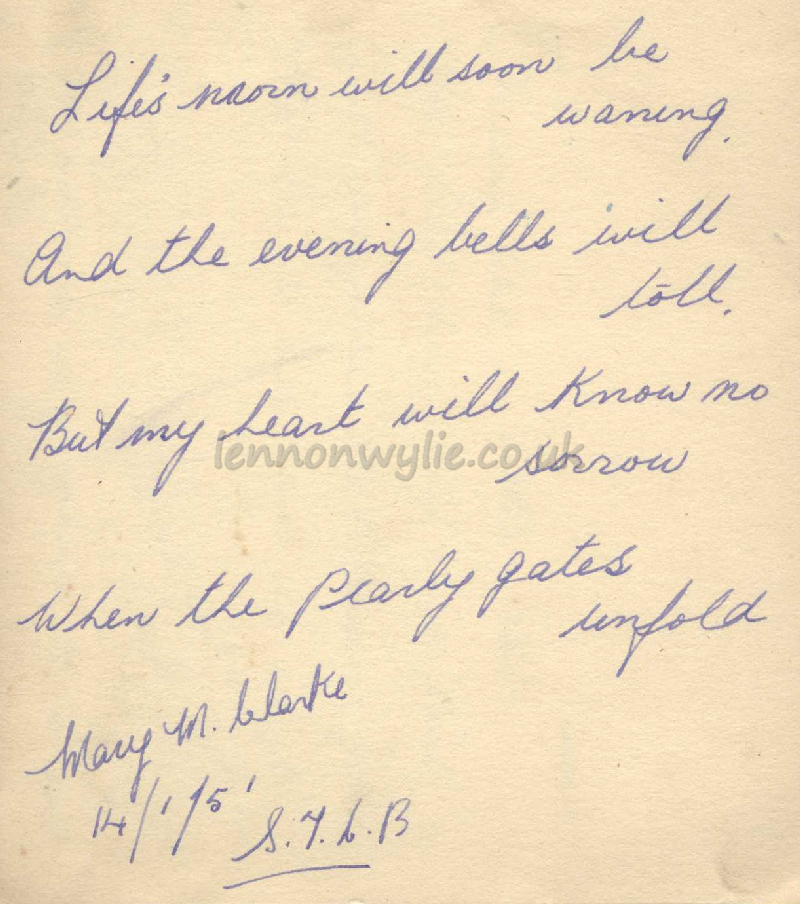 Life's morn will soon be
waning.
And the evening bells will
toll.
But my heart will Know no
sorrow
lennonwylie.co.uk
When the Pearly gates
unfold
Mary M. Clarke
14/1/51
S.Y.L.B